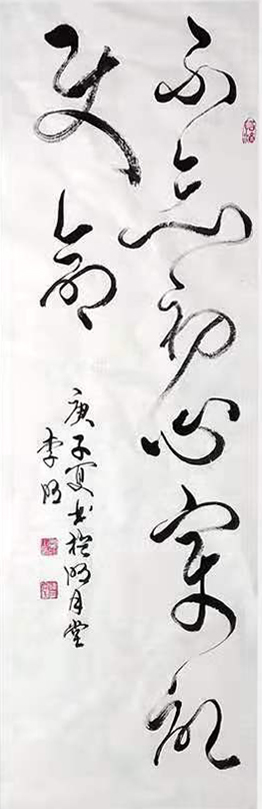 不忘初心牢记
使命
庚子夏书於明月堂
李明